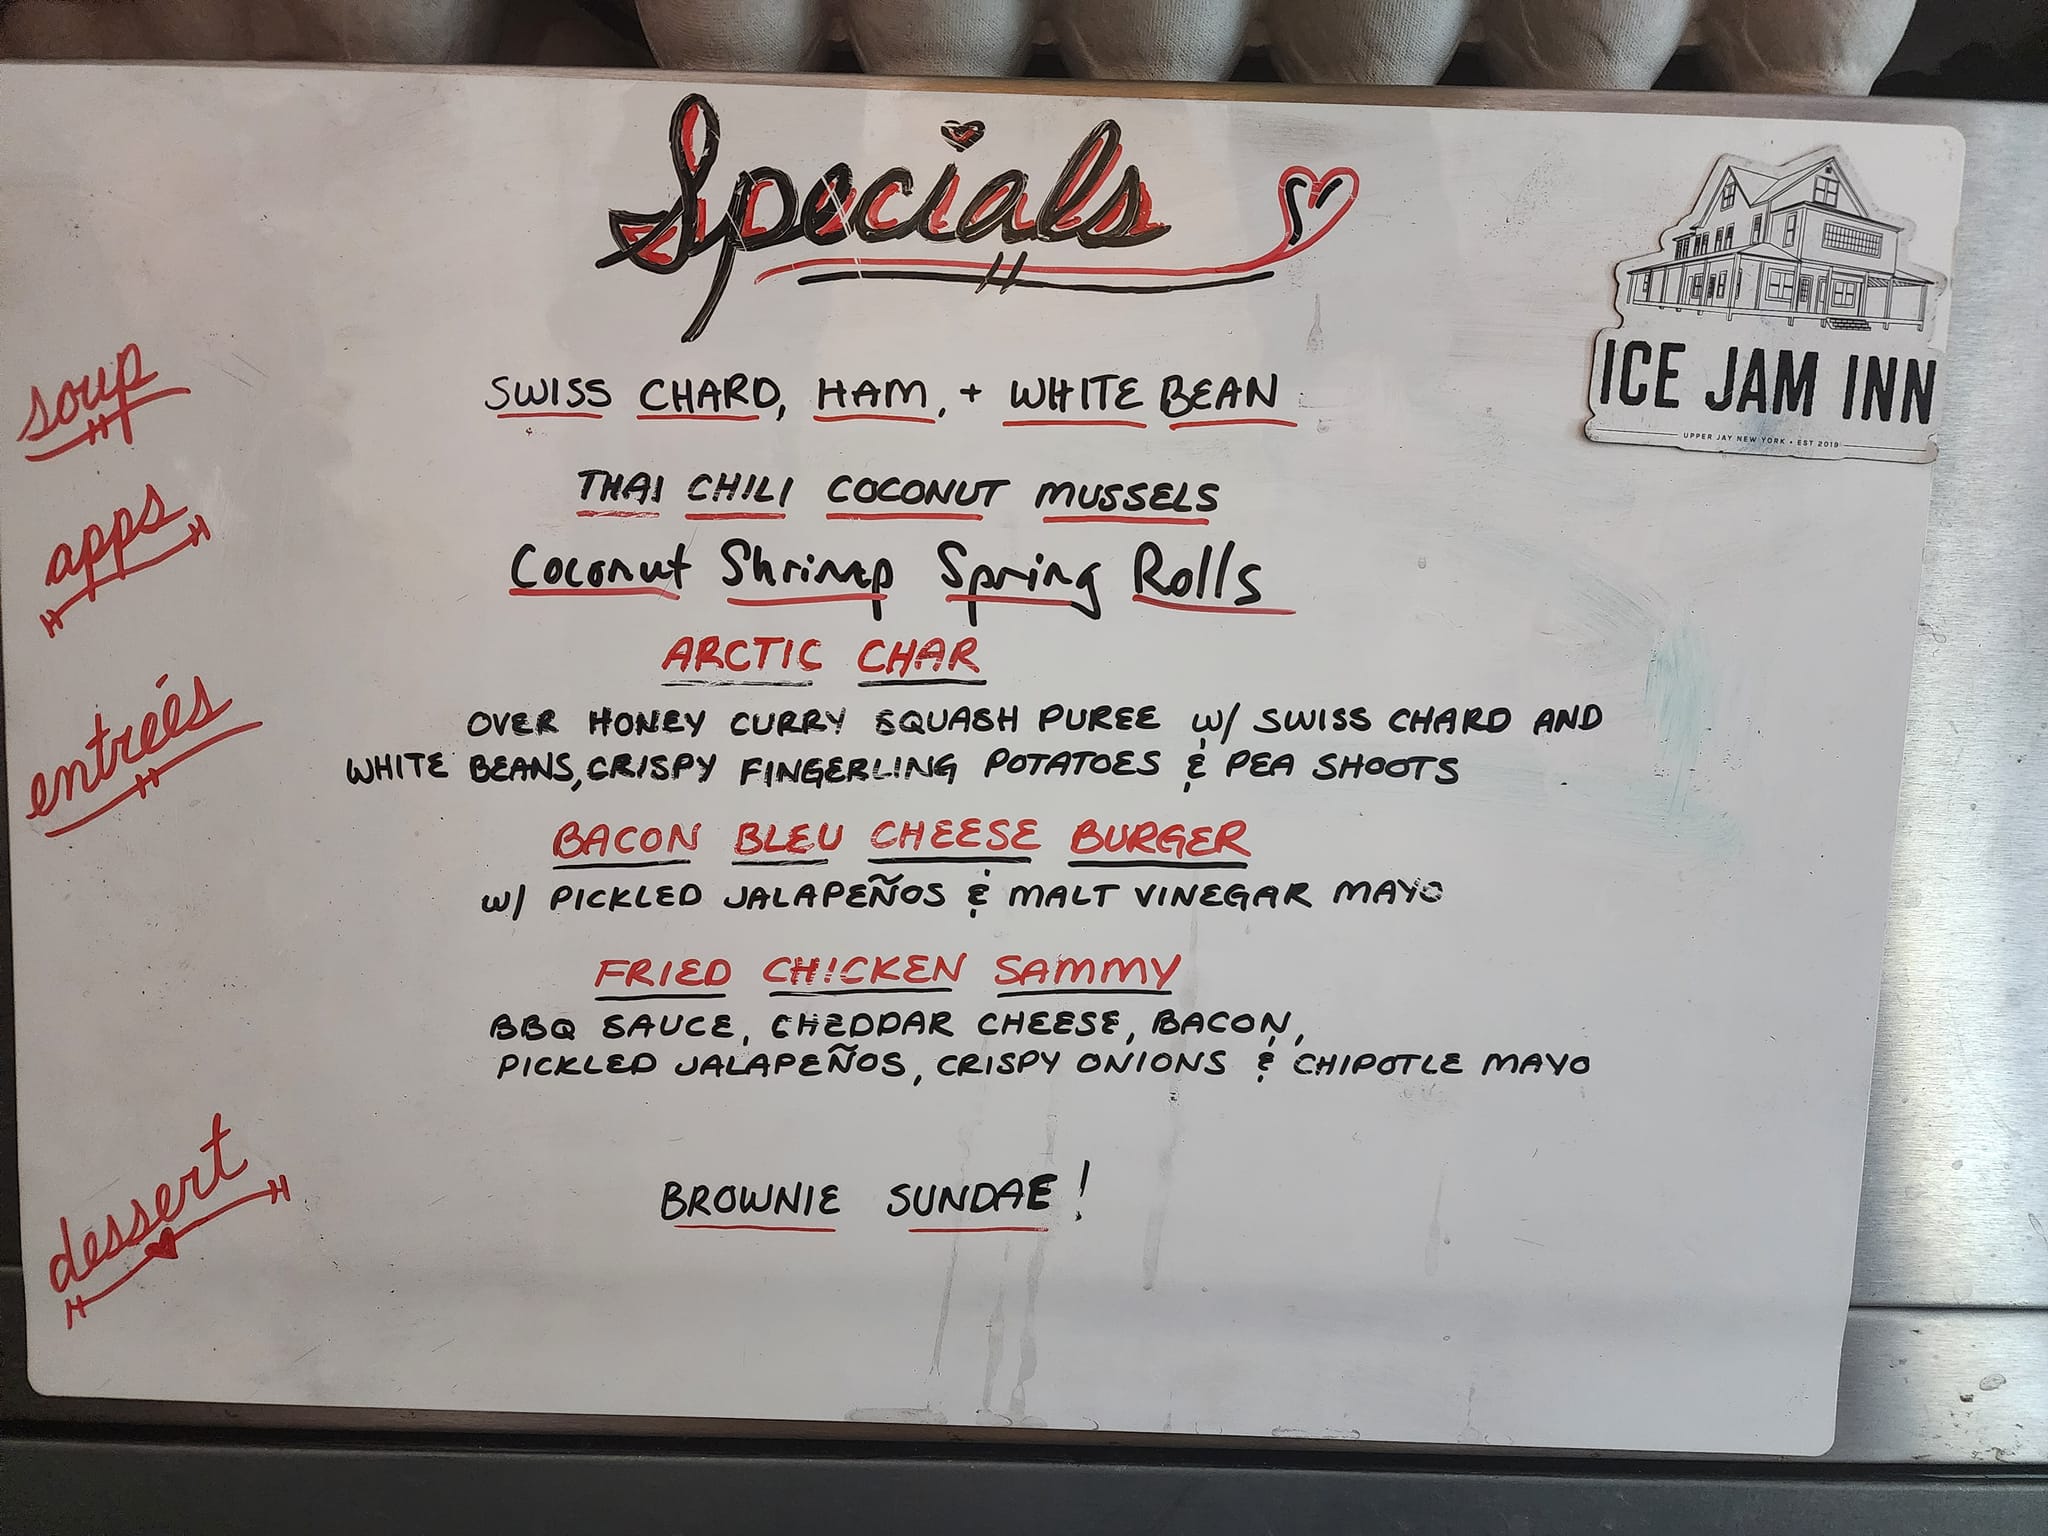 Specials
ICE JAM INN
UPPER JAY NEW YORK • EST 2019
soup
SWISS CHARD, HAM, + WHITE BEAN
apps
THAI CHILI COCONUT MUSSELS
Coconut Shrimp Spring Rolls
entreés
ARCTIC CHAR
OVER HONEY CURRY SQUASH PUREE w/ SWISS CHARD AND
WHITE BEANS, CRISPY FINGERLING POTATOES & PEA SHOOTS
BACON BLEU CHEESE BURGER
w/ PICKLED JALAPEÑOS & MALT VINEGAR MAYO
FRIED CHICKEN SAMMY
BBQ SAUCE, CHEDDAR CHEESE, BACON,
PICKLED JALAPEÑOS, CRISPY ONIONS & CHIPOTLE MAYO
dessert
BROWNIE SUNDAE!